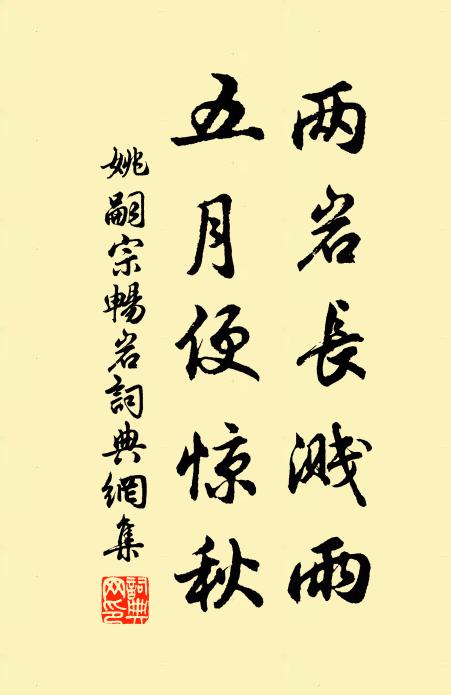 两岩長溅雨
五月便惊秋
姚嗣宗暢岩詞典網集
詞典網印